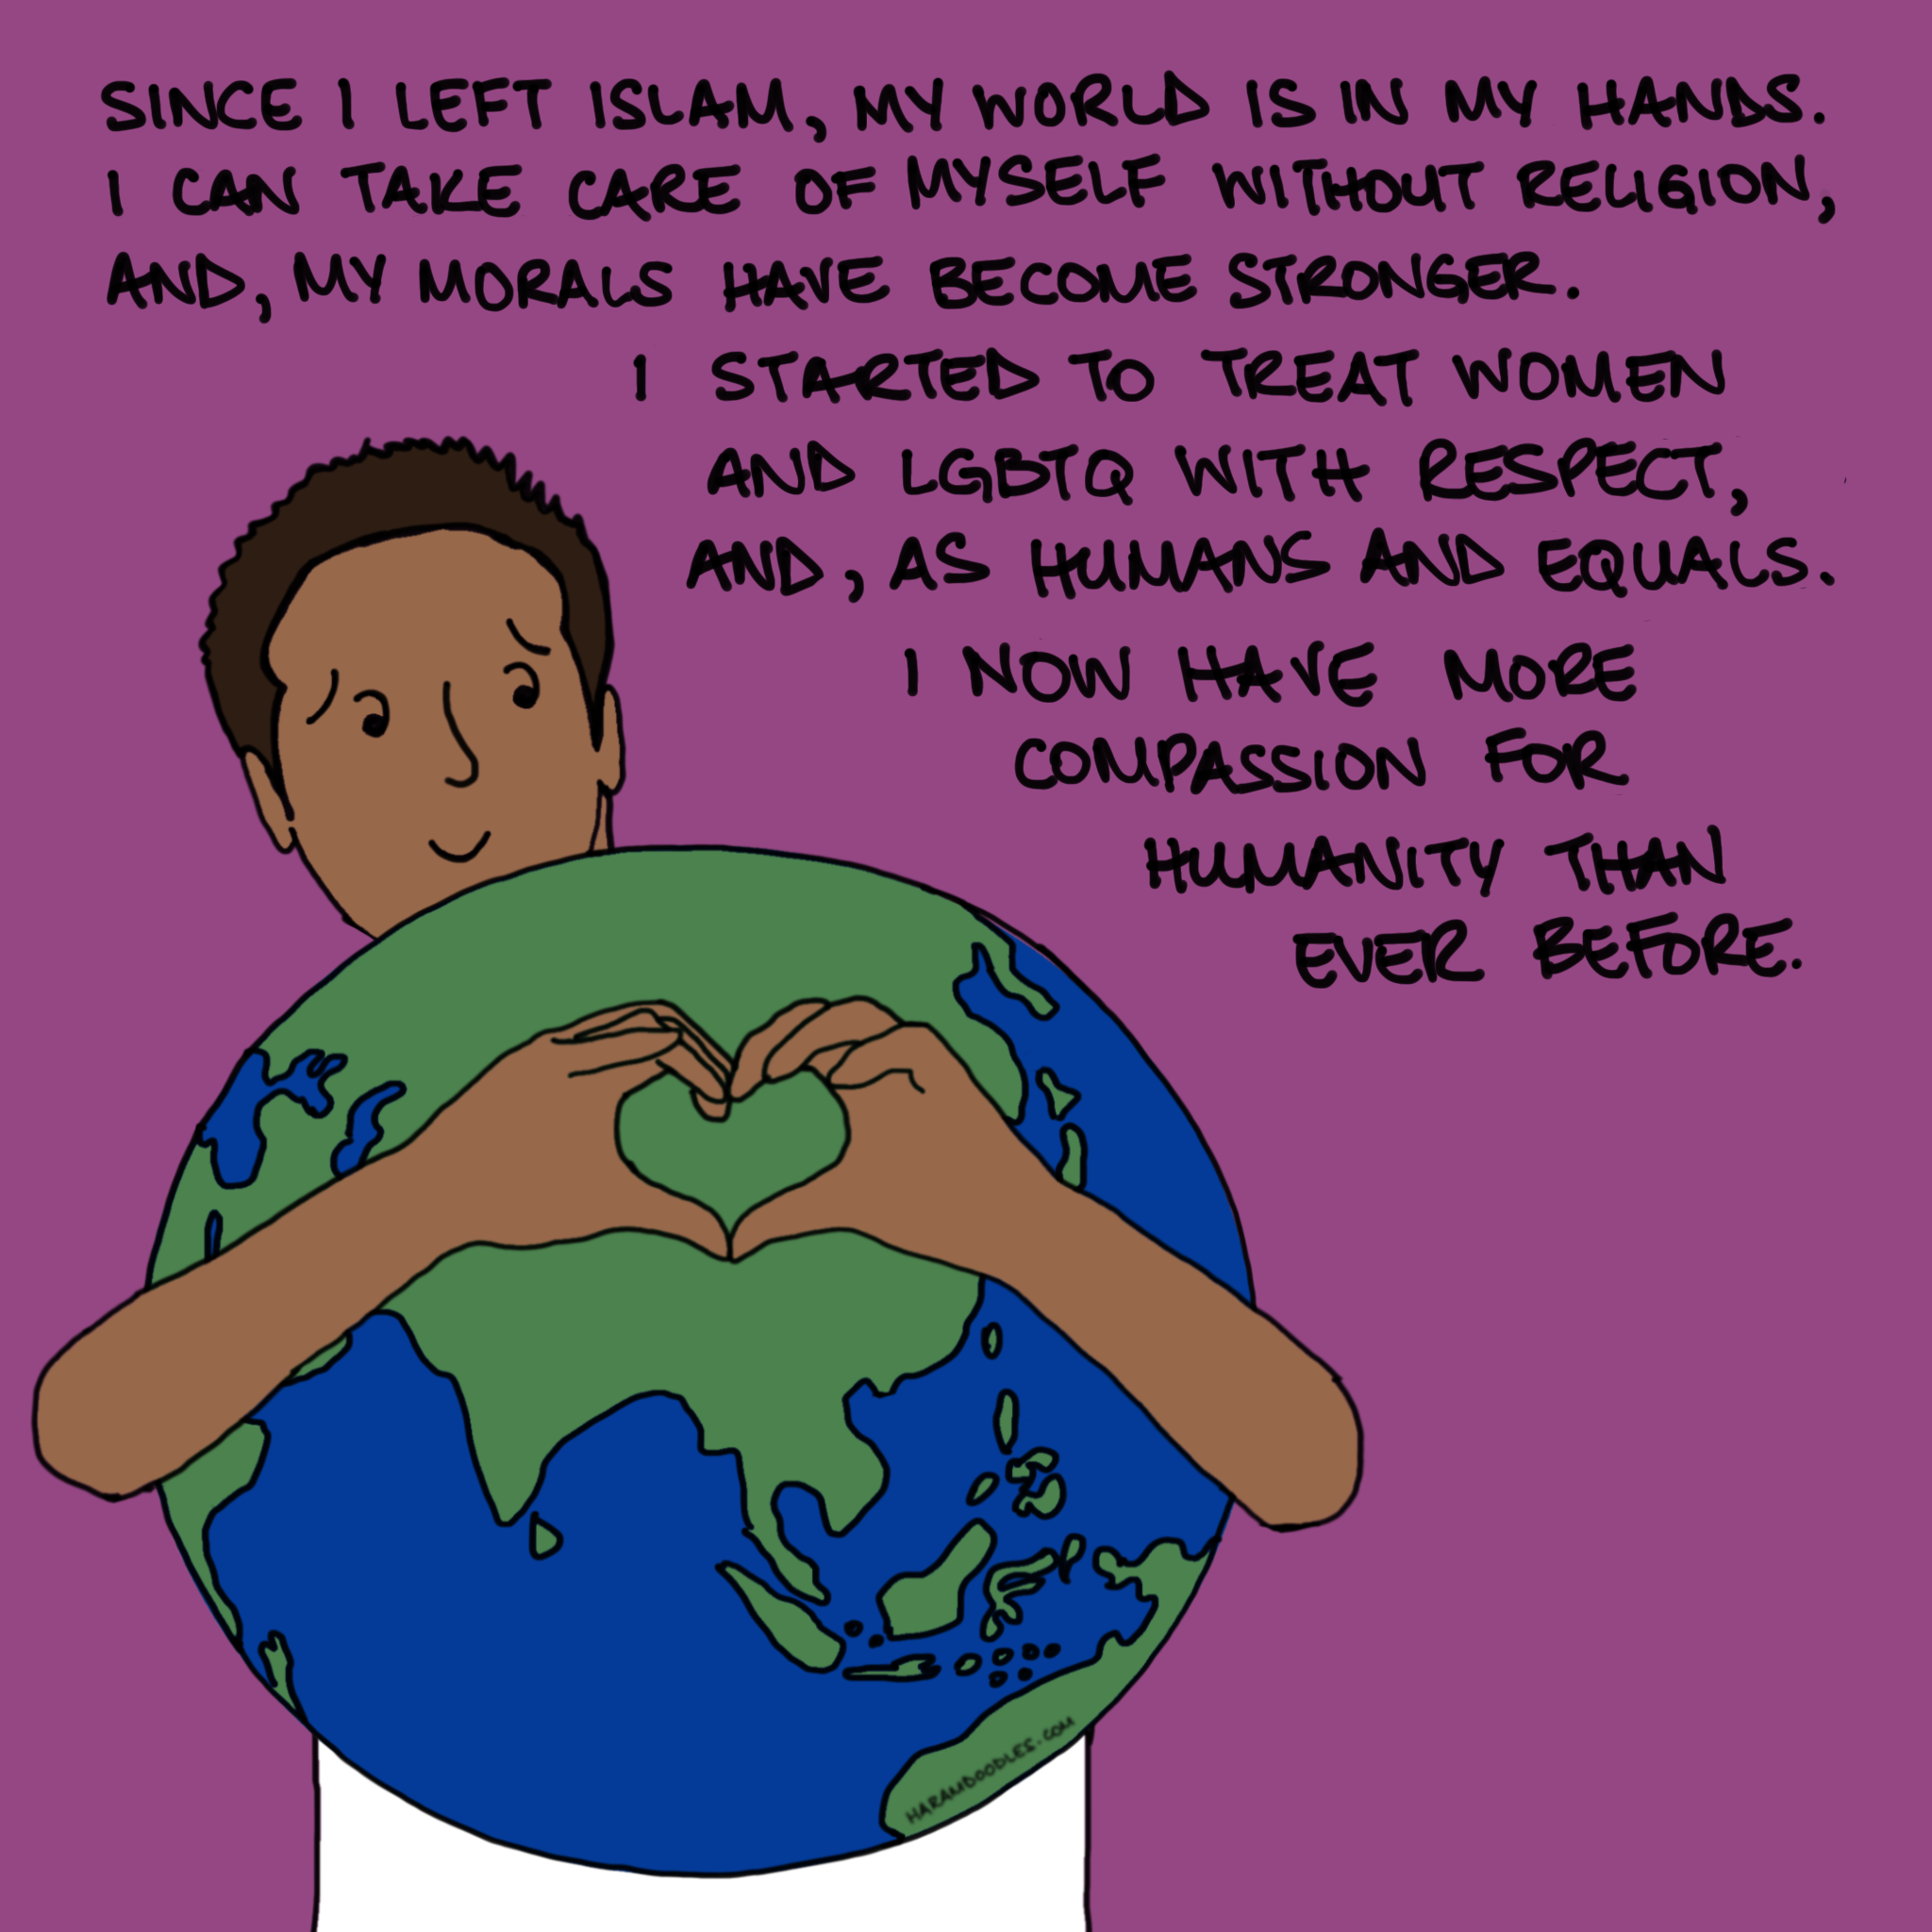 SINCE I LEFT ISLAM, MY WORLD IS IN MY HANDS.
I CAN TAKE CARE OF MYSELF WITHOUT RELIGION,
AND, MY MORALS HAVE BECOME STRONGER.
I STARTED TO TREAT WOMEN
AND LGBTQ WITH RESPECT,
AND, AS HUMANS AND EQUALS.
I NOW HAVE MORE
COMPASSION FOR
HUMANITY THAN
EVER BEFORE.
HARAMDOODLES.COM